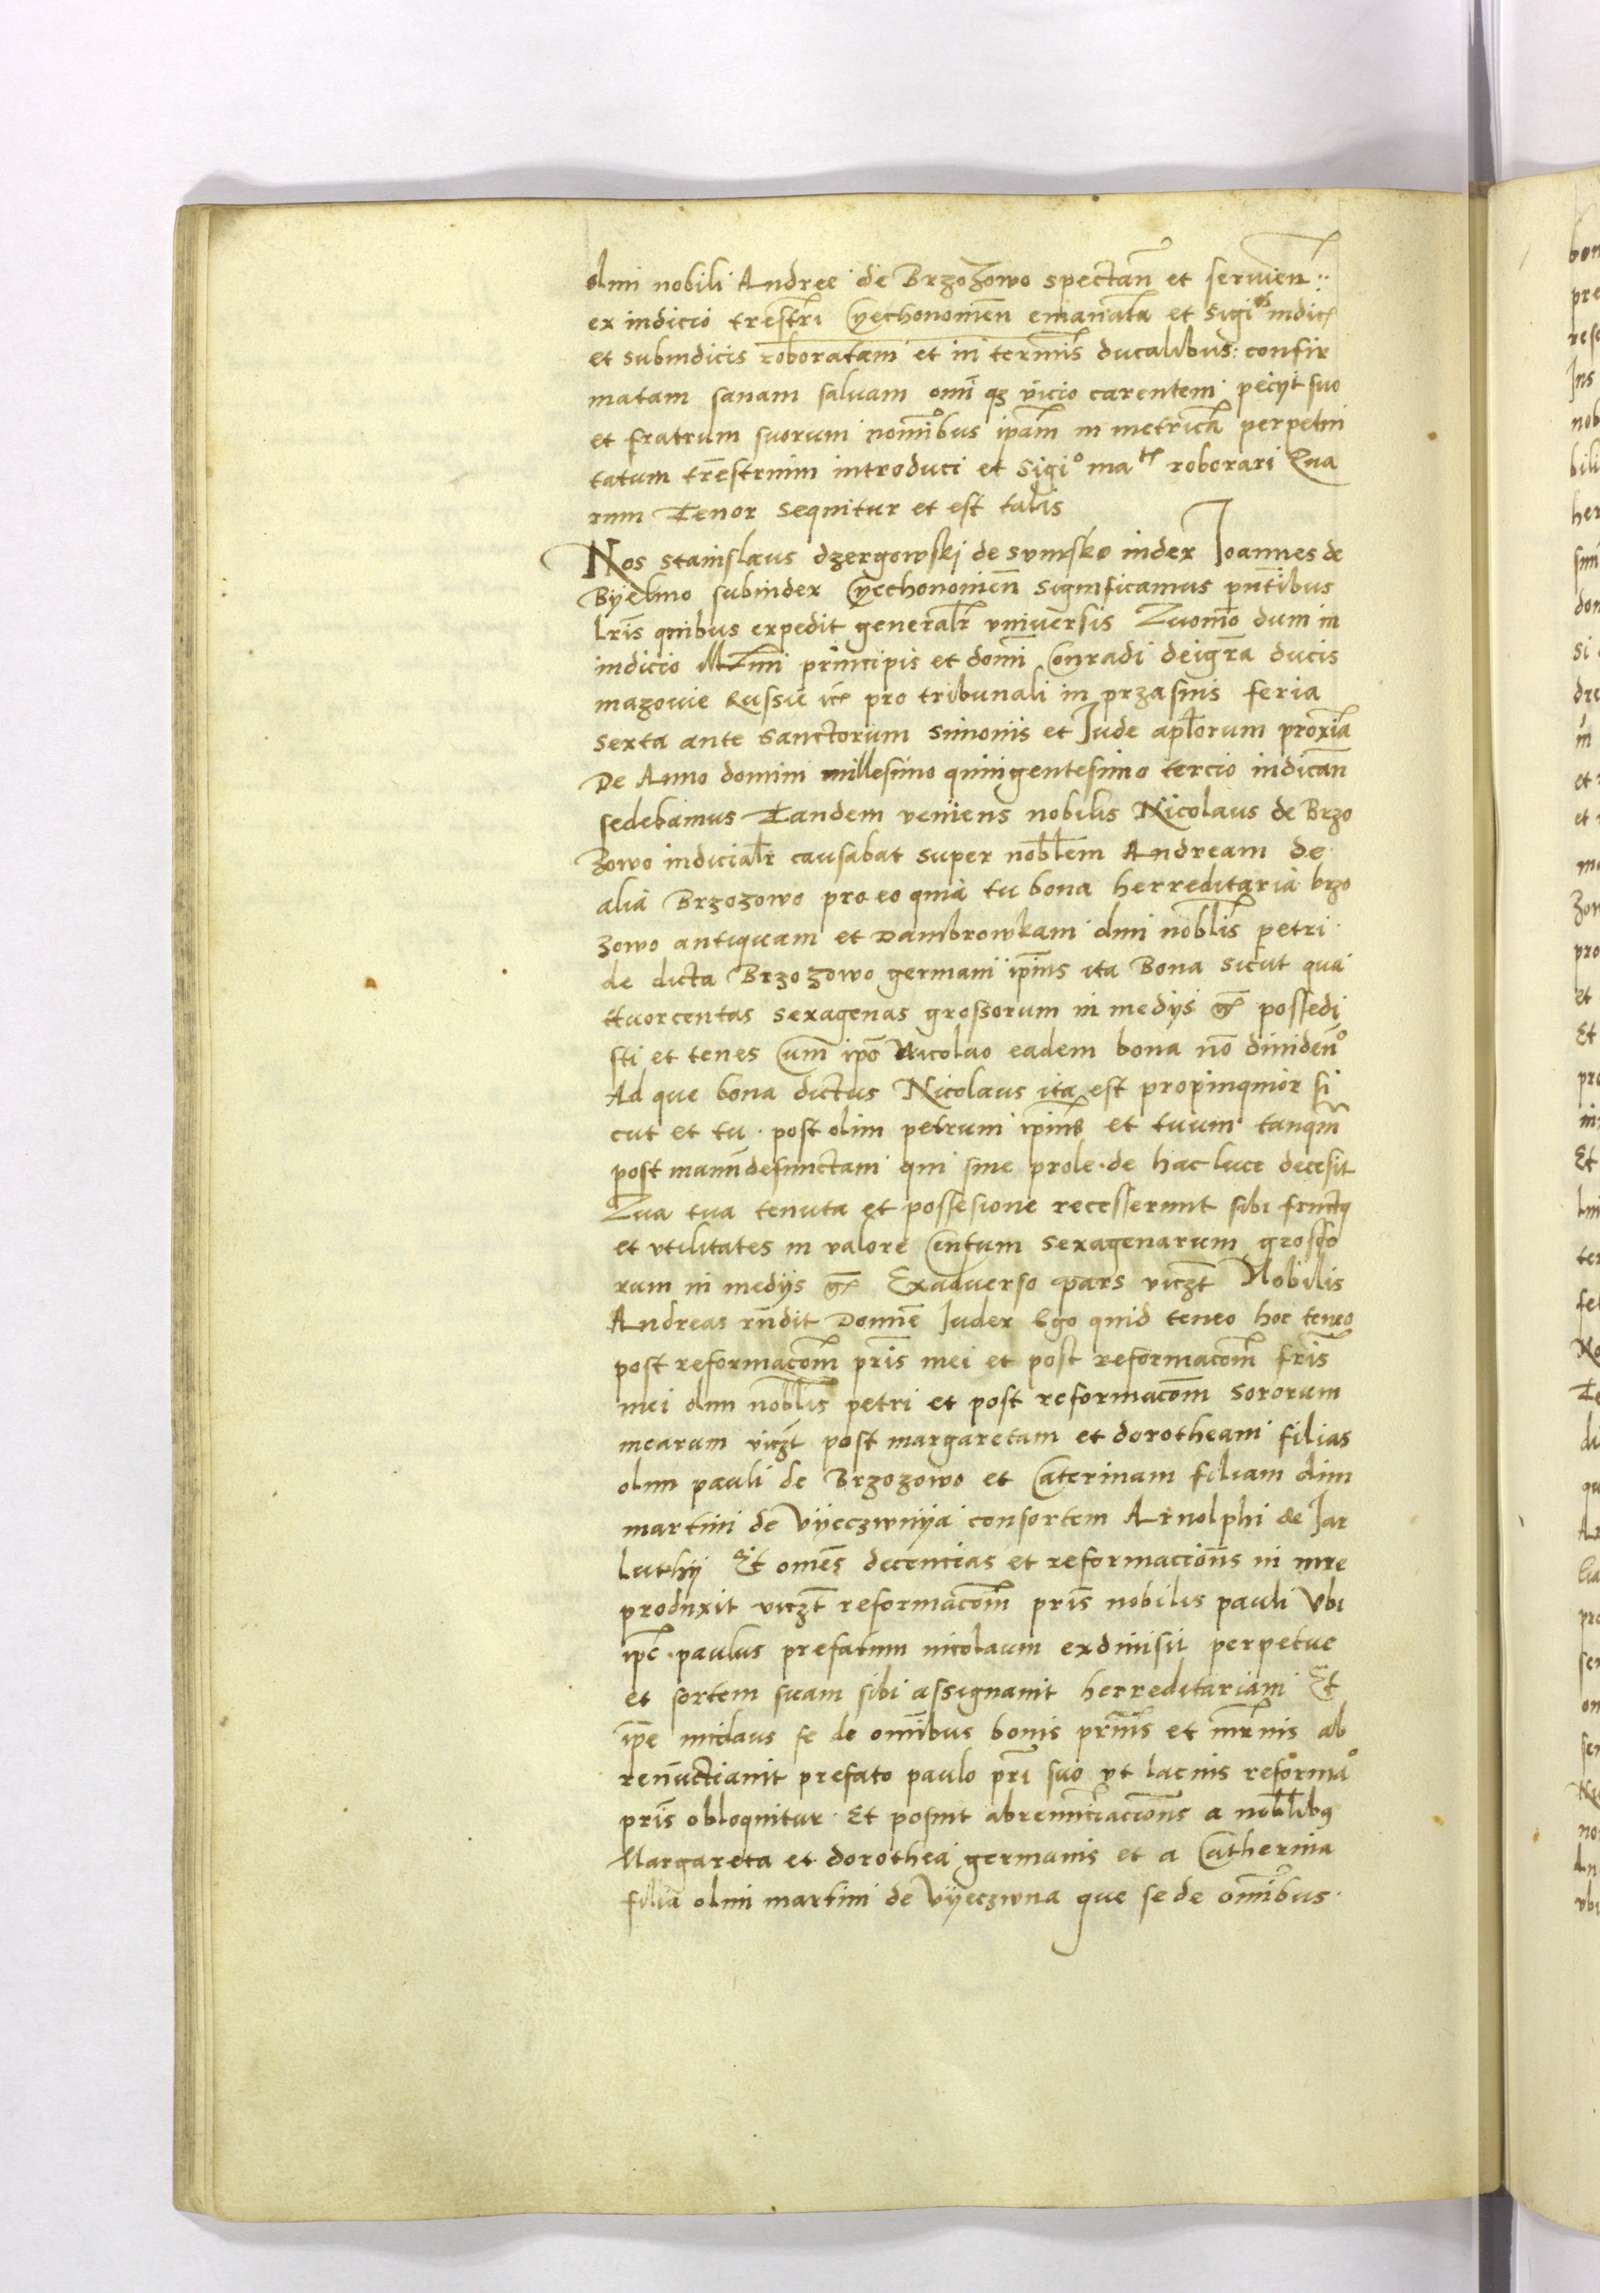 olim nobili Andree de Brzozowo spectan̄ et servien̄
ex iudicio tr̄estri Cyechonomien̄ emanatā et sigiis iudic̄
et subiudicis roboratam et in termīs ducalibus confir
matam sanam salvam omīqꝫ vicio carentem pecijt suo
et fratrum suorum nomībus ip̄am in metricā perpetui
tatum tr̄estrium introduci et sigio ma roborari Qua
rum Tenor sequitur et est talis
Nos Stanislaus dzergowskj de Iudex Ioannes de
Byelino subiudex Cyechonomien̄ significamus pn̄tibus
lr̄is quibus expedit generalr̄ vniversis Quomō dum in
iudicio Ill̄mi principis et domī Conradi dei gr̄a ducis
mazouie Russie ꝛc pro tribunali in przasnis feria
sexta ante Sanctorum simonis et Iude apl̄orum proxīa
De Anno domini millesimo quingentesimo tercio iudican̄
sedebamus Tandem veniens nobilis Nicolaus de Brzo
zowo iudicialr̄ causabat super nobl̄em Andream de
alia Brzozowo pro eo quia tu bona herreditaria brzo
zowo antiquam et Dambrowkam olim nobl̄is petri
de dicta Brzozowo germani ip̄ius ita Bona sicut qua
ttuorcentas sexagenas grossorum in medijs gͬ possedi
sti et tenes Cum ip̄o Nicolao eadem bona nō dividen̄o
Ad que bona dictus Nicolaus ita est propinquior si
cut et tu post olim petrum ip̄ius et tuum tanqm̄
post manū defunctam qui sine prole de hac luce decesit
Qua tua tenuta et possesione recesserunt sibi fructꝯ
et vtilitates in valore Centum sexagenarum grosso
rum in medijs gͬ Ex adverso pars viczt̄ Nobilis
Andreas rn̄dit Domīe Iudex Ego quid teneo hoc teneo
post reformacom̄ pr̄is mei et post reformacom̄ fr̄is
mei olim nobl̄is petri et post reformacom̄ sororum
mearum viczt̄ post margaretam et dorotheam filias
olim pauli de Brzozowo et Caterinam filiam olim
martini de Vyeczwnya consortem Arnolphi de Iar
luthy Et omēs decencias et reformaciōns in iure
produxit viczt̄ reformacom̄ pr̄is nobilis pauli Vbi
ip̄e paulus prefatum nicolaum exdivisit perpetue
et sortem suam sibi assignavit herreditariam Et
ip̄e nicolaus se de omībus bonis pr̄nis et mr̄nis ab
renunctiavit prefato paulo pr̄i suo vt lacius reformao
pr̄is obloquitur Et posuit abrenunciaciōns a nobl̄ibꝯ
Margareta et dorothea germanis et a Catherina
filia olim martini de Vyeczwna que se de omībus